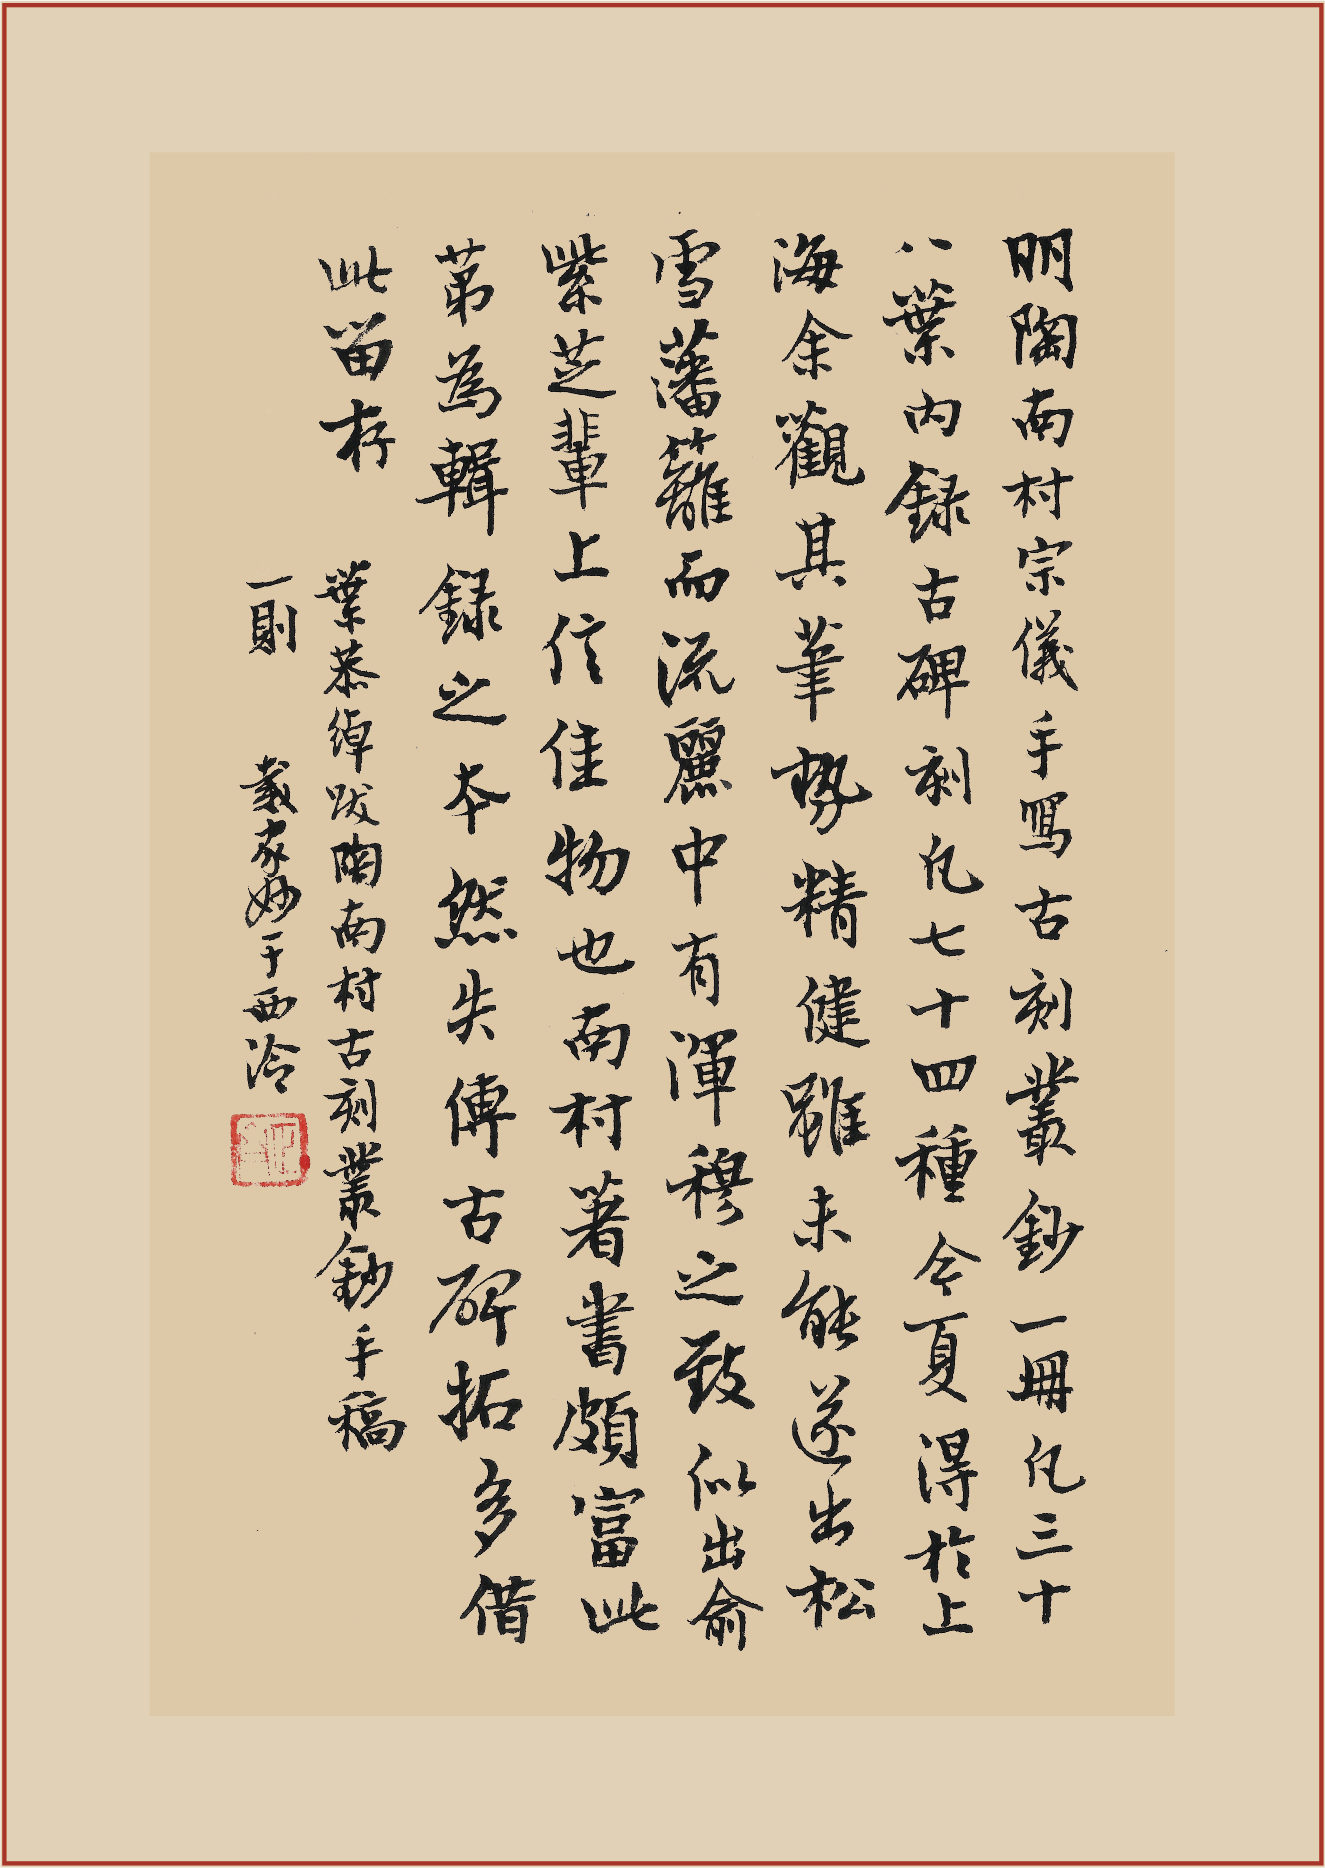 明陶南村宗儀手寫古刻叢鈔一冊凡三十
八葉內録古碑刻凡七十四種今夏得於上
海余觀其筆勢精健雖未能遂出松
雪藩籬而流麗中有渾穆之致似出俞
紫芝輩上信佳物也南村著書頗富此
苐為輯録之本然失傳古碑拓多借
此留存
葉恭綽跋陶南村古刻叢鈔手稿
一則 戴家妙于西泠